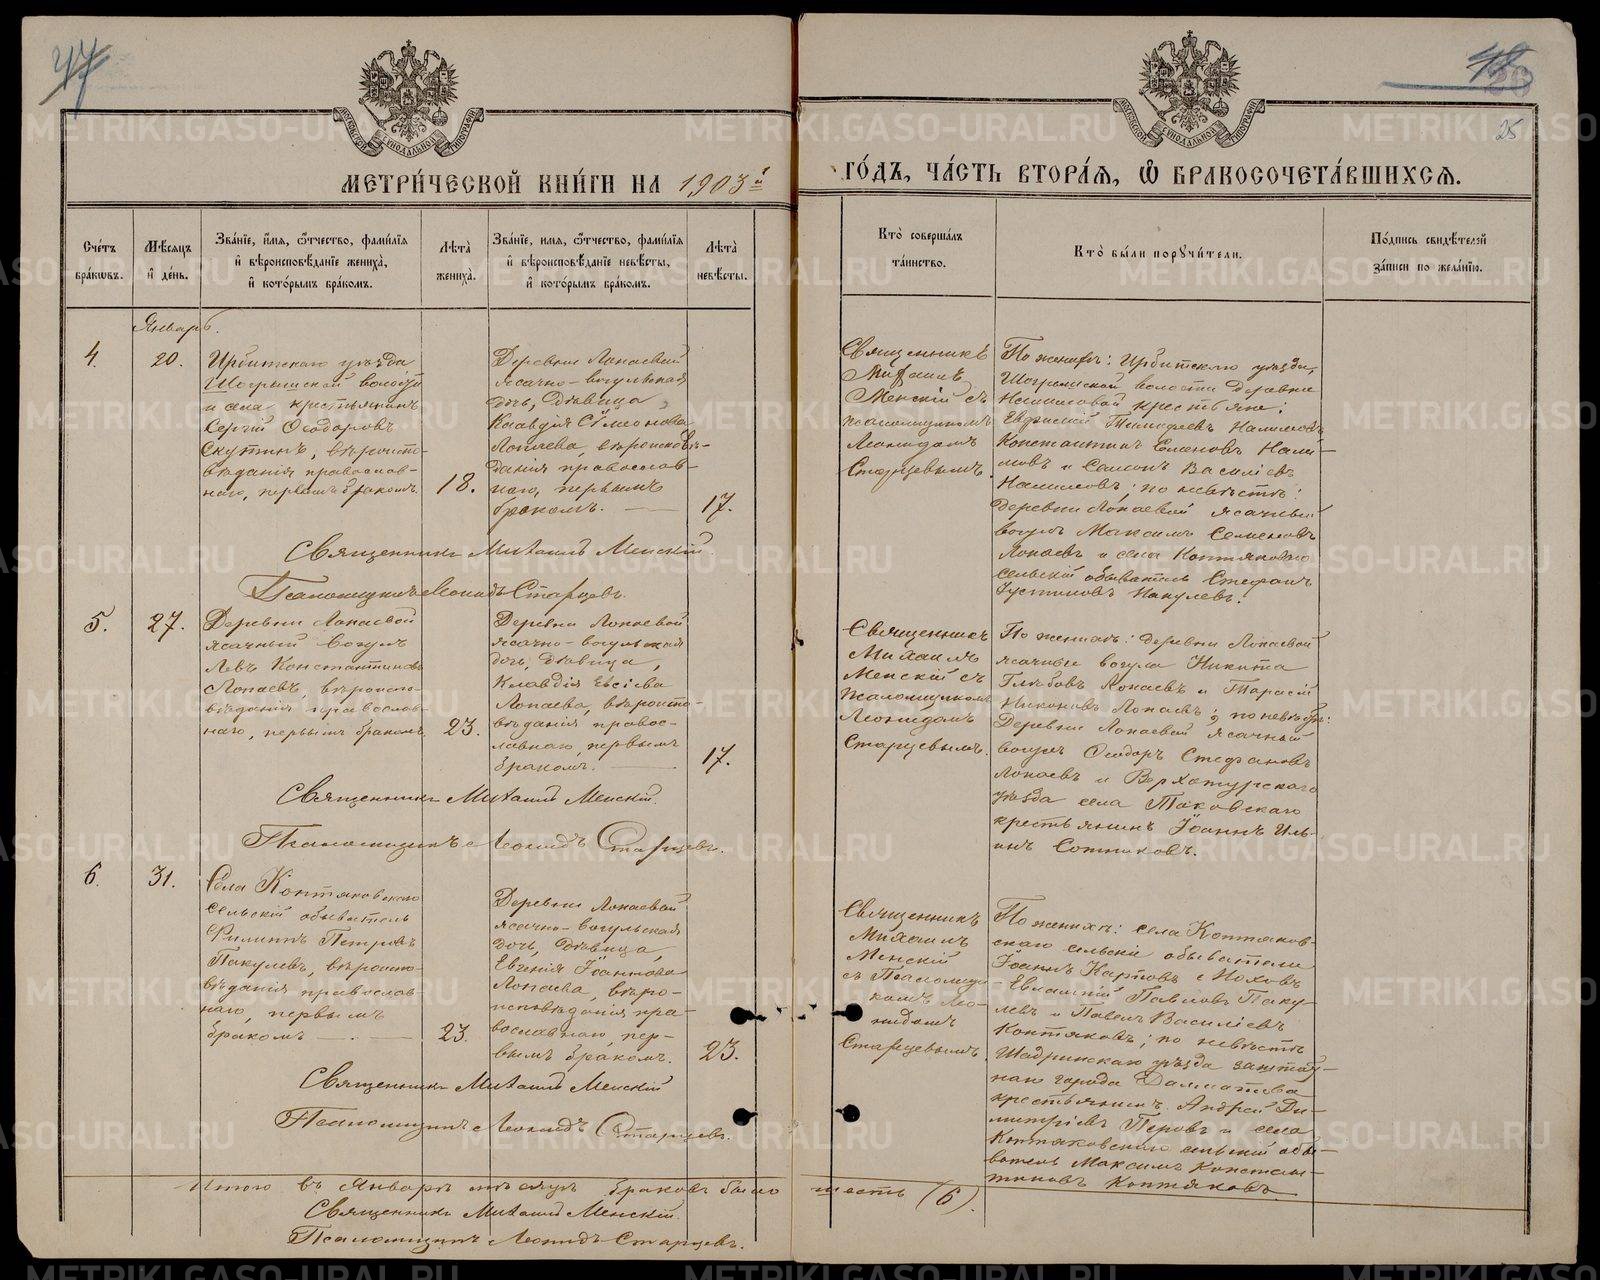 47
48
26
25
МОСКОВСКОЙ СУНОДАЛЬНОЙ ТИПОГРАФІИ
МОСКОВСКОЙ СУНОДАЛЬНОЙ ТИПОГРАФІИ
МЕТРИ́ЧЕСКОЙ КНИ́ГИ НА 1903й
ГО́ДЪ, ЧА́СТЬ ВТОРА́Я, Ѽ БРАКОСОЧЕТА́ВШИХСЯ.
Сче́тъ бра́кѡвъ.
Мѣ́сяцъ и҆ де́нь.
Зва́нїе, и҆́мя, ѻ҆́тчество, фами́лїя и҆ вѣроисповѣ́данїе жениха̀, и҆ кото́рымъ бра́комъ.
Лѣ́та жениха̀.
Зва́нїе, имя, ѻ҆́тчество, фами́лїя и҆ вѣроисповѣ́данїе невѣ́сты, и҆ кото́рымъ бра́комъ.
Лѣ́та невѣ́сты.
Кто̀ соверша́лъ та́инство.
Кто̀ бы́ли порꙋчи́тели.
По́дпись свидѣ́телей за́писи по жела́нїю.
Январь.
4.
20.
Ирбитскаго уѣзда
Шогрышской волости
и села, крестьянинъ
Сергій Ѳеодоровъ
Скутинъ, вѣроиспо-
вѣданія православ-
наго, первымъ бракомъ.
18.
Деревни Лопаевой
ясачно-вогульская
дочь, дѣвица,
Клавдія Сѵмеонова
Лопаева, вѣроисповѣ-
данія православ-
наго, первымъ
бракомъ.
17.
Священникъ
Михаилъ
Менскій съ
псаломщикомъ
Леонидомъ
Старцевымъ.
По женихѣ: Ирбитскаго уѣзда,
Шогрышской волости деревни
крестьяне:
Тимоѳеевъ
Константинъ Семеновъ
и Семенъ Василіевъ
по невѣстѣ:
деревни Лопаевой ясачный
вогулъ Максимъ Семеновъ
Лопаевъ и села Коптяковскаго
сельскій обыватель Стефанъ
Іустиновъ Пакулевъ.
Священникъ Михаилъ Менскій
Псаломщикъ Леонидъ Старцевъ.
5.
27.
Деревни Лопаевой
ясачный вогулъ
Левъ Константиновъ
Лопаевъ, вѣроиспо-
вѣданія православ-
наго, первымъ бракомъ.
23.
Деревни Лопаевой
ясачно-вогульская
дочь, дѣвица,
Клавдія Евсіева
Лопаева, вѣроиспо-
вѣданія правос-
лавнаго, первымъ
бракомъ.
17.
Священникъ
Михаилъ
Менскій съ
псаломщикомъ
Леонидомъ
Старцевымъ.
По женихѣ: деревни Лопаевой
ясачные вогулы Никита
Глѣбовъ Лопаевъ и Тарасій
Никоновъ Лопаевъ; по невѣстѣ:
Деревни Лопаевой ясачный
вогулъ Ѳеодоръ Стефановъ
Лопаевъ и Верхотурскаго
уѣзда села
крестьянинъ Іоаннъ Иль-
инъ Сотниковъ.
Священникъ Михаилъ Менскій.
Псаломщикъ Леонидъ Старцевъ.
6.
31.
Села Коптяковскаго
сельскій обыватель
Филиппъ Петровъ
Пакулевъ, вѣроиспо-
вѣданія православ-
наго, первымъ
бракомъ
23.
Деревни Лопаевой
ясачно-вогульская
дочь, дѣвица,
Евгенія Іоаннова
Лопаева, вѣро-
исповѣданія пра-
вославнаго, пер-
вымъ бракомъ.
23.
Священникъ
Михаилъ
Менскій
съ Псаломщи-
комъ Лео-
нидомъ
Старцевымъ.
По женихѣ: села Коптяков-
скаго сельскіе обыватели
Іоаннъ Карповъ
Евлампій Павловъ Паку-
левъ и Павелъ Василіевъ
Коптяковъ; по невѣстѣ
Шадринскаго уѣзда заштат-
наго города Далматова
крестьянинъ Андрей Ди-
митріевъ Перовъ и села
Коптяковскаго сельскій обы-
ватель Максимъ Констан-
тиновъ Коптяковъ.
Священникъ Михаилъ Менскій
Псаломщикъ Леонидъ Старцевъ.
Итого въ Январѣ мѣсяцѣ браковъ было шесть (6).
Священникъ Михаилъ Менскій.
Псаломщикъ Леонидъ Старцевъ.
METRIKI.GASO-URAL.RU